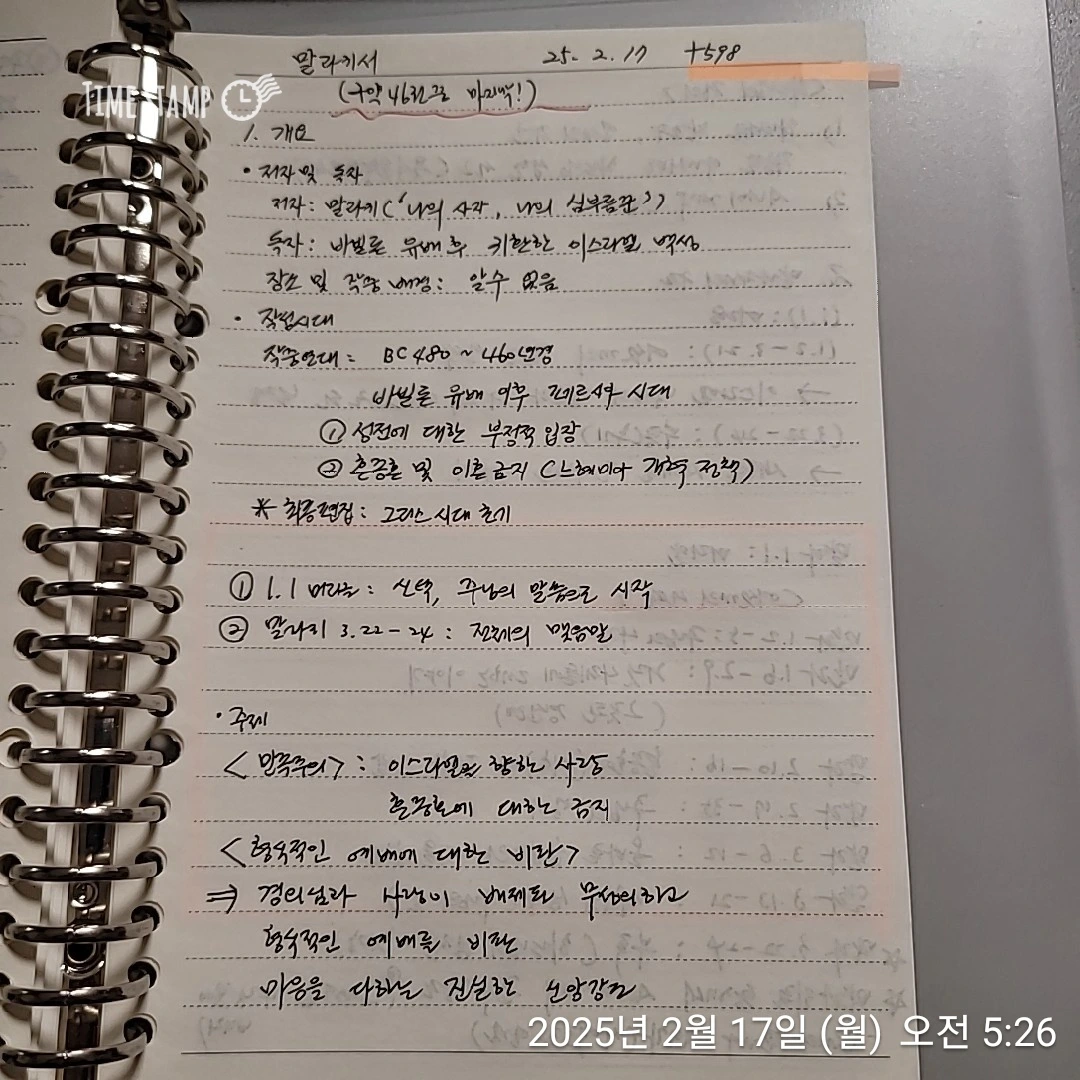 말라키서 25. 2. 17 +598
TIME STAMP
(구약 46권으로 마지막!)
1. 개요
• 저자 및 독자
저자: 말라키('나의 사자, 나의 심부름꾼')
독자: 바빌론 유배 후 귀환한 이스라엘 백성
장소 및 작중 배경: 알수 없음
• 작성시대
작중연대: BC 480 ~ 460년경
바빌론 유배 이후 페르샤 시대
① 성전에 대한 부정적 입장
② 혼종혼 및 이혼 금지 (느헤미야 개혁 정책)
* 최종편집: 그리스 시대 초기
① 1.1 머리글: 신탁, 주님의 말씀으로 시작
② 말라키 3.22-24: 전체의 맺음말
• 주제
<민족주의>: 이스라엘을 향한 사랑
혼종혼에 대한 금지
<형식적인 예배에 대한 비판>
⇒ 경외심과 사랑이 배제된 무성의하고
형식적인 예배를 비판
마음을 다하는 진실한 신앙강조
2025년 2월 17일 (월) 오전 5:26